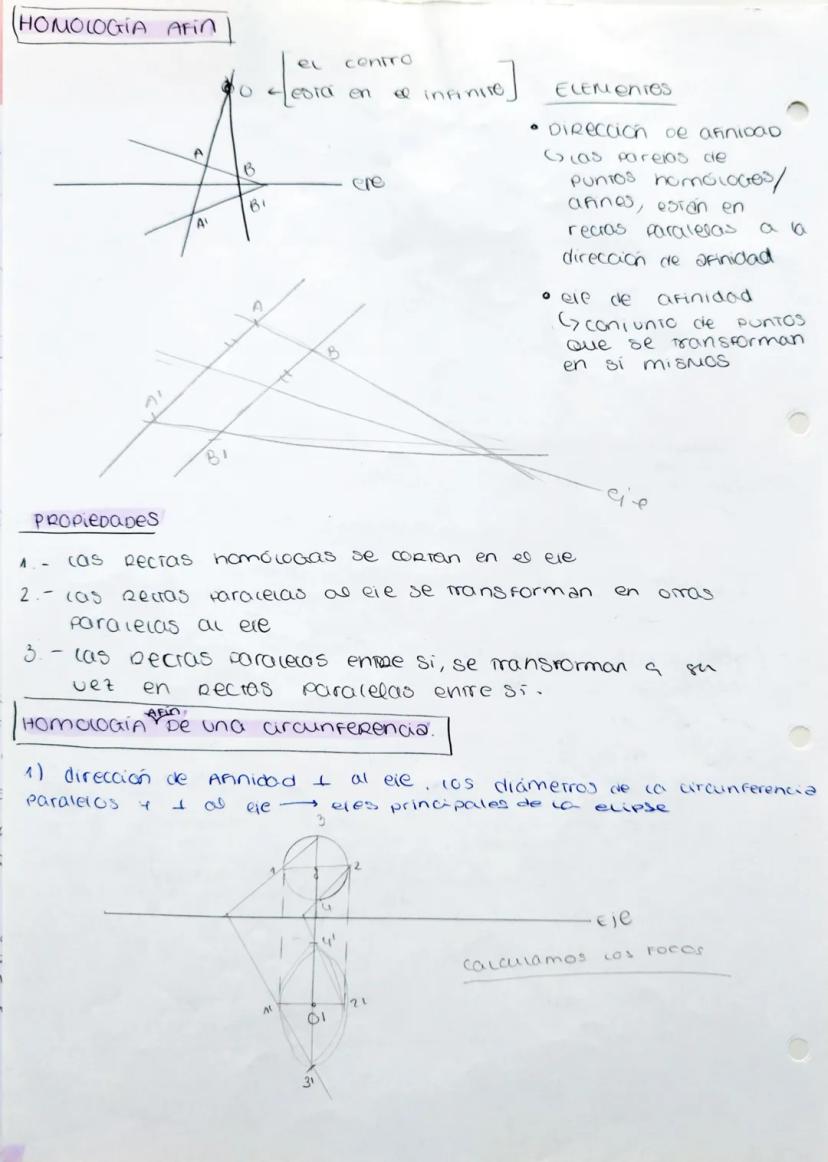 HOMOLOGÍA AFÍN
el centro
está en el infinito
O
A
B
eje
A'
B'
ELEMENTOS
• DIRECCIÓN DE AFINIDAD
↳ las parejas de
puntos homólogos/
afines, están en
rectas paralelas a la
dirección de afinidad
• eje de afinidad
↳ conjunto de puntos
que se transforman
en sí mismos
A
B
A'
B'
eje
PROPIEDADES
1.- las rectas homólogas se cortan en el eje
2.- las rectas paralelas al eje se transforman en otras
paralelas al eje
3.- las rectas paralelas entre si, se transforman a su
vez en rectas paralelas entre sí.
HOMOLOGÍA AFÍN DE una circunferencia.
1) dirección de Afinidad ⊥ al eje. los diámetros de la circunferencia
paralelos y ⊥ al eje → ejes principales de la elipse
3
1
2
4
eje
4'
calculamos los focos
1'
2'
O'
3'